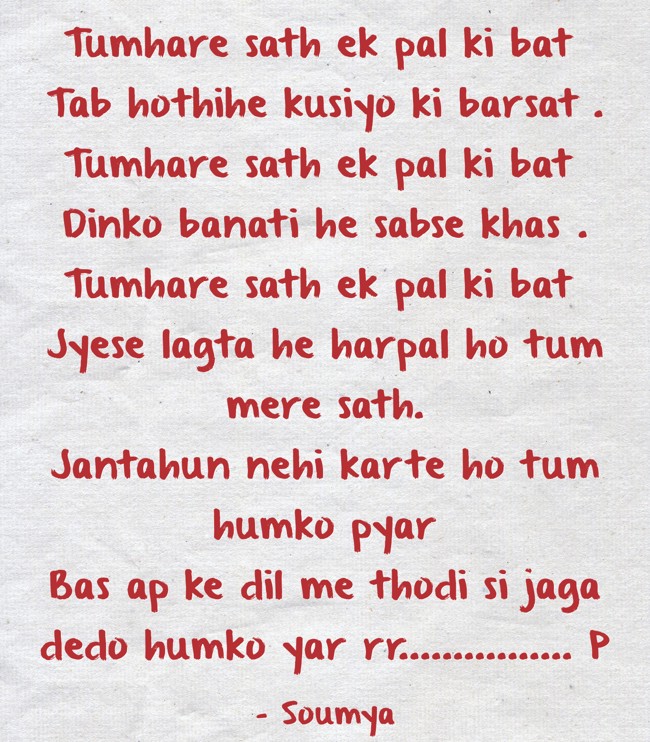 Tumhare sath ek pal ki bat
Tab hothihe kusiyo ki barsat .
Tumhare sath ek pal ki bat
Dinko banati he sabse khas .
Tumhare sath ek pal ki bat
Jyese lagta he harpal ho tum
mere sath.
Jantahun nehi karte ho tum
humko pyar
Bas ap ke dil me thodi si jaga
dedo humko yar rr................ P
- Soumya